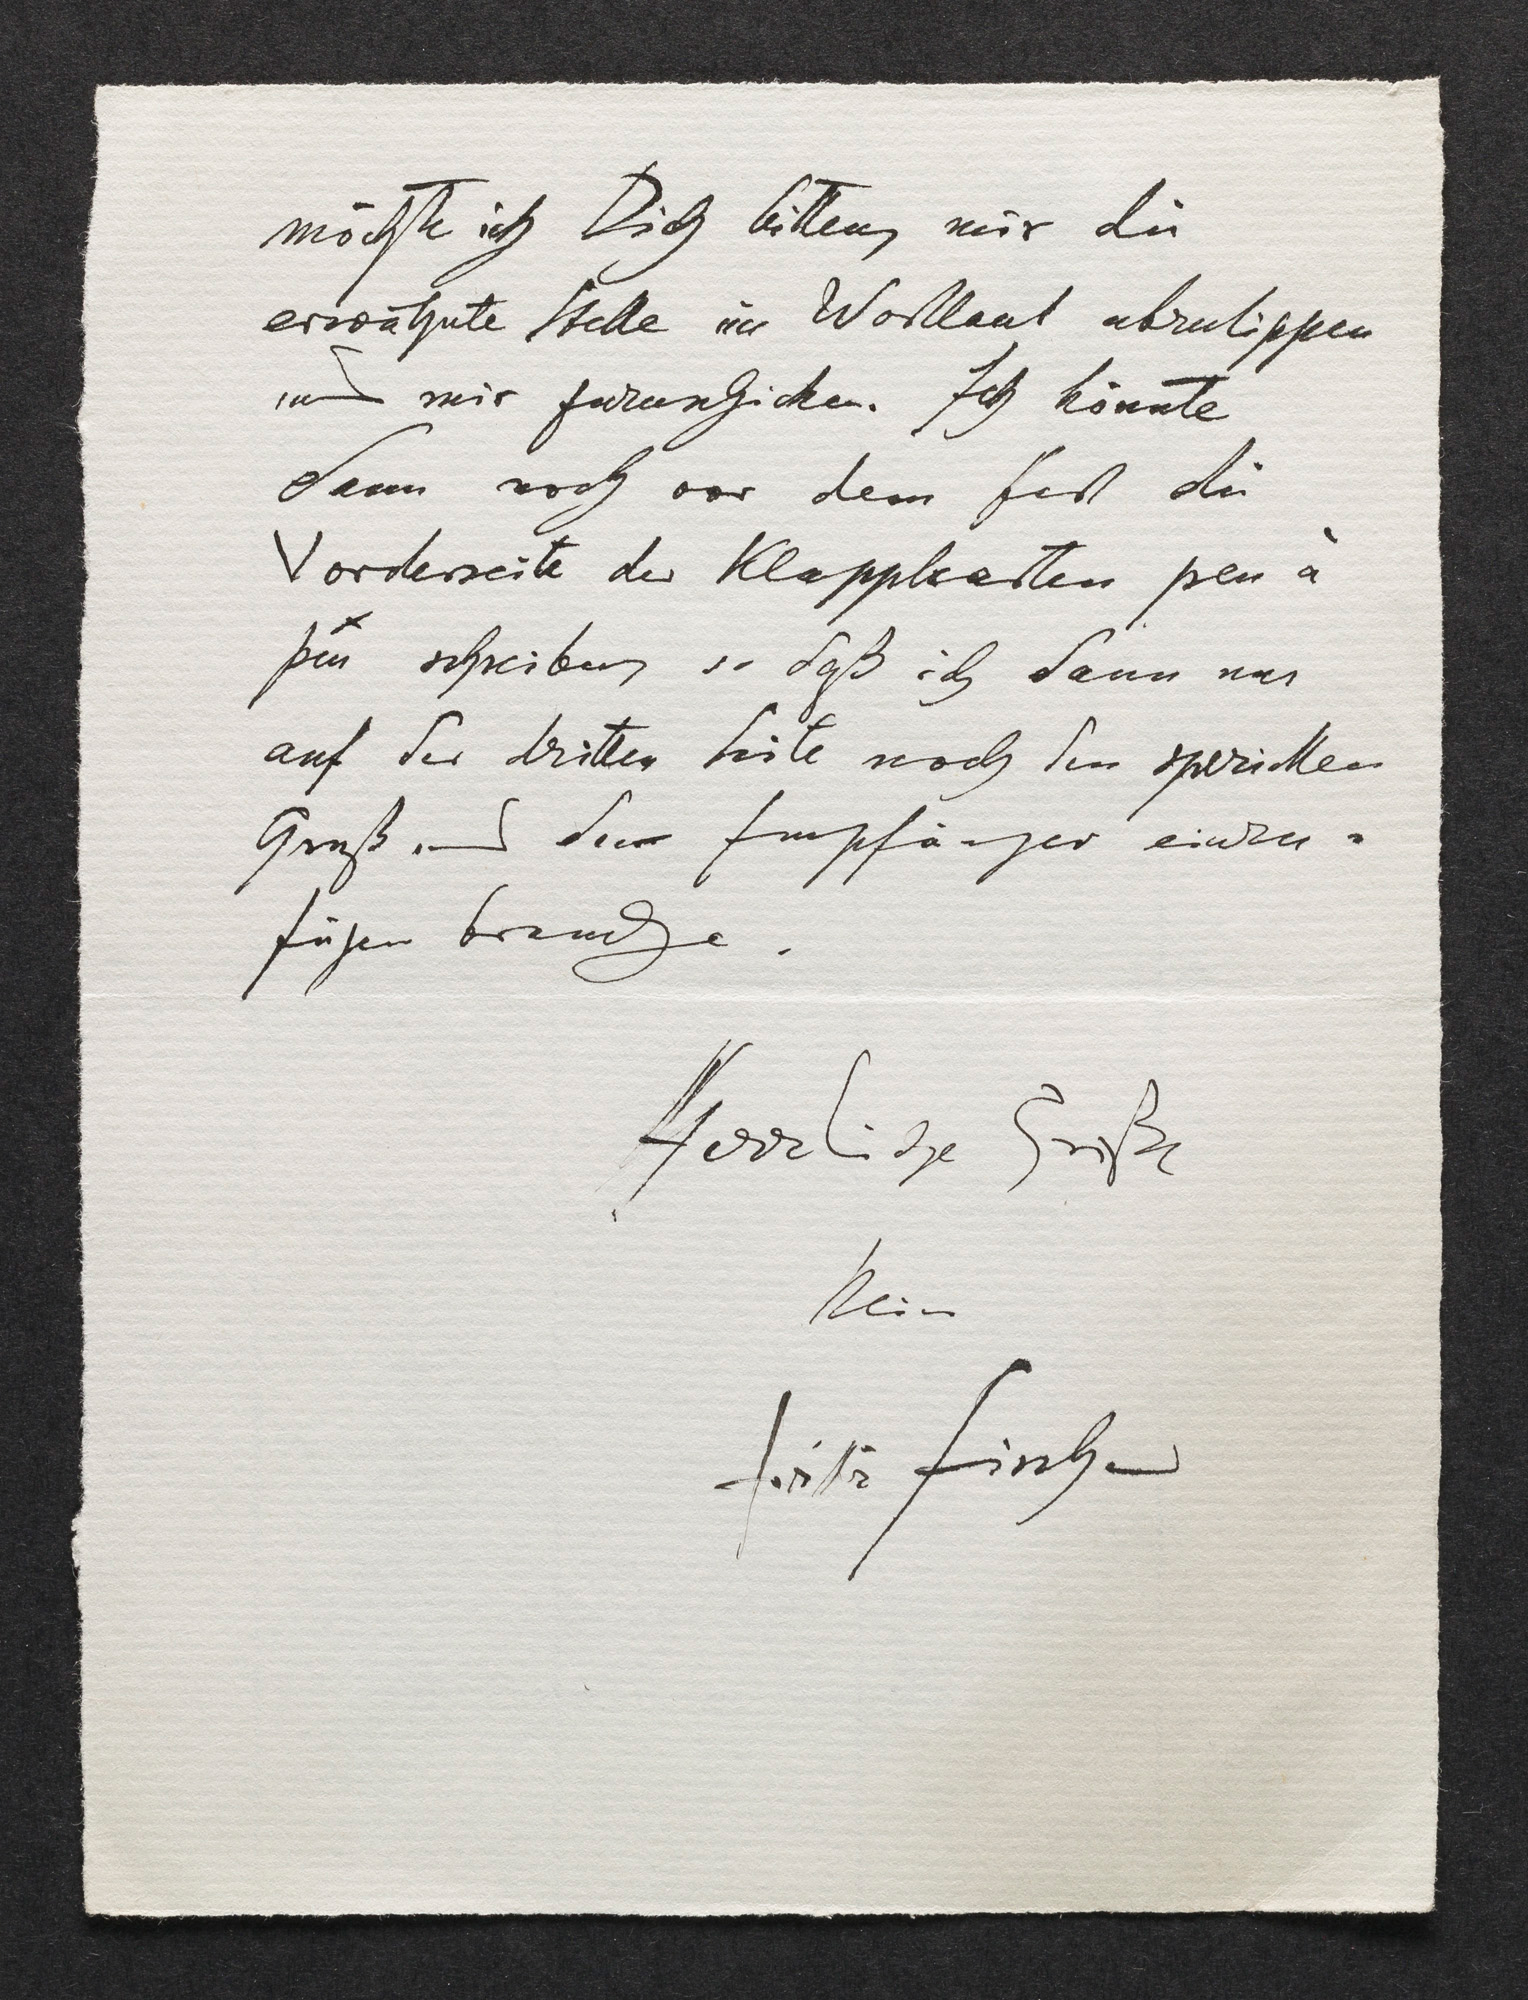 möchte ich Dich bitten, mir die
erwähnte Stelle im Wortlaut abzutippen
und mir zuzuschicken. Ich könnte
dann noch vor dem Fest die
Vorderseite der Klappkarten peu à
peu schreiben, so daß ich dann nur
auf der dritten Seite noch den speziellen
Gruß und den Empfänger einzu-
fügen brauche.
Herzliche Grüße
Dein
Fritz Fischer